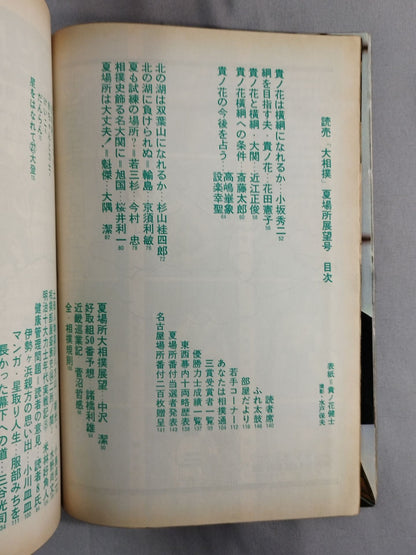 読売「大相撲」夏場所展望号 目次
表紙＝貴ノ花健士
撮影・水戸保夫
貴ノ花は横綱になれるか…小坂秀二 52
綱を目指す夫・貴ノ花…花田憲子 60
貴ノ花と横綱・大関…近江正俊 58
貴ノ花横綱への条件…斎藤太郎 62
貴ノ花の今後を占う…高嶋崋象
設楽幸聖 64
北の湖は双葉山になれるか…杉山桂四郎 72
北の湖に負けられぬ＝輪島…京須利敏 76
夏も試練の場所？＝若三杉…今村 忠 78
相撲史飾る名大関に＝旭国…桜井利一 80
夏場所は大丈夫！＝魁傑…大隅 潔 82
読者席 140
ふれ太鼓 148
部屋だより 116
若手コーナー 112
あなたは相撲通 104
三賞受賞者一覧 93
優勝力士成績一覧
東西幕内十両略歴表
夏場所番付当選者発表
名古屋場所番付二百枚贈呈
夏場所大相撲展望…中沢 潔 50
好取組50番予想…諸橋利雄 94
近畿巡業記…菅沼哲感
全・相撲規則
健康管理問題…読者の意見…読者８氏
伊勢ヶ浜親方の思い出…小川
マンガ・星取り人生…服部みちを
長かった幕下への道…三谷光司